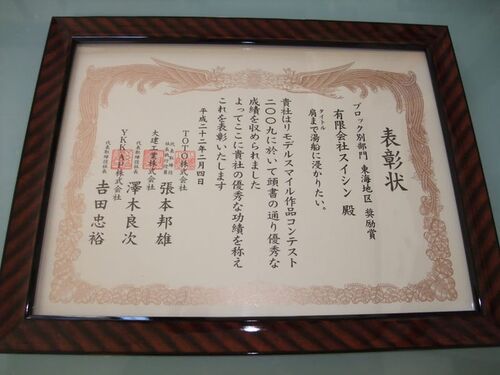 表彰状
ブロック別部門 東海地区 奨励賞
有限会社スイシン 殿
タイトル
肩まで湯船に浸かりたい。
貴社はリモデルスマイル作品コンテスト
二〇〇九に於いて頭書の通り優秀な
成績を収められました
よってここに貴社の優秀な功績を称え
これを表彰いたします
平成二十二年二月四日
TOTO株式会社
張本邦雄
大建工業株式会社
代表取締役社長
澤木良次
YKKAP株式会社
代表取締役社長
吉田忠裕